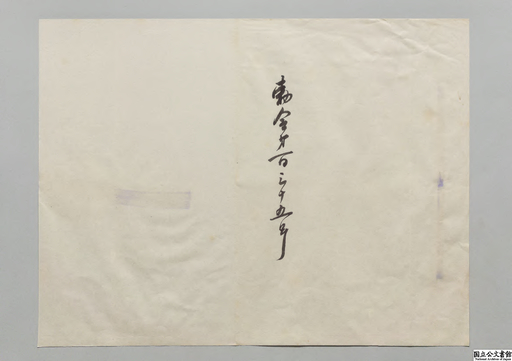 勅令第百三十五号
国立公文書館
National Archives of Japan